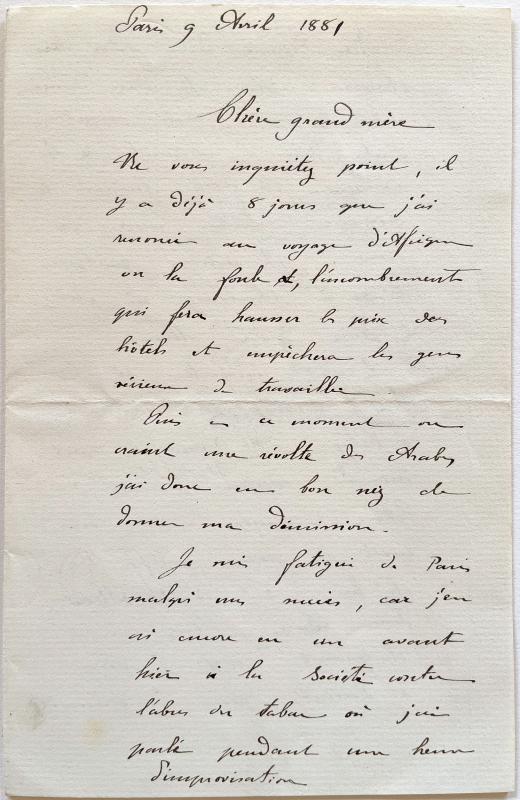 Paris 9 Avril 1881
Chère grand mère
Ne vous inquiétez point, il
y a déjà 8 jours que j'ai
renoncé au voyage d'Afrique
vu la foule et, l'encombrement
qui fera hausser le prix des
hôtels et empêchera les gens
sérieux de travailler.
Puis en ce moment on
craint une révolte des Arabes
j'ai donc eu bon nez de
donner ma démission.
Je suis fatigué de Paris
malgré mes succès, car j'en
ai encore eu un avant
hier à la Société contre
l'abus du tabac où j'ai
parlé pendant une heure
d'improvisation